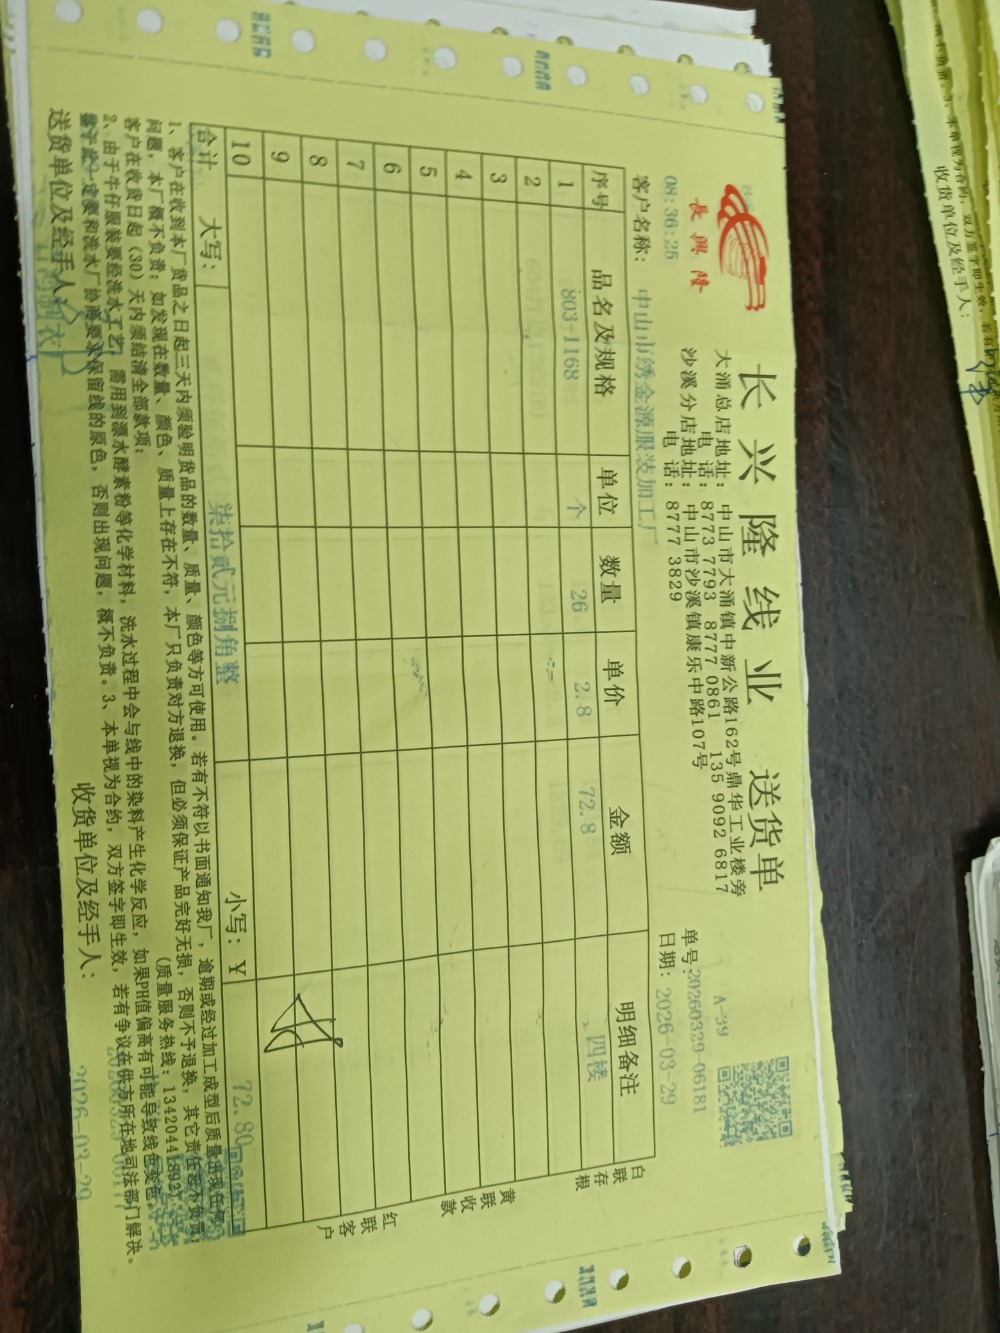 长兴隆线业 送货单
長興隆
大涌总店地址：中山市大涌镇中新公路162号鼎华工业楼旁
电 话：8773 7793 8777 0861 135 9092 6817
沙溪分店地址：中山市沙溪镇康乐中路107号
电 话：8777 3829
A-39
单号：20260329-06181
08:36:25
日期：2026-03-29
客户名称：中山市绣金源服装加工厂
序号 品名及规格 单位 数量 单价 金额 明细备注
1 803-1168 个 26 2.8 72.8 四楼
2
3
4
5
6
7
8
9
10
合计 大写：柒拾贰元捌角整 小写：¥ 72.80
白联存根
黄联收款
红联客户
1、客户在收到本厂货品之日起三天内须验明货品的数量、质量、颜色等方可使用。若有不符以书面通知我厂，逾期或经过加工成型后质量出现任何
问题，本厂概不负责；如发现在数量、颜色、质量上存在不符，本厂只负责对方退换，但必须保证产品完好无损，否则不予退换，其它责任概不负责；
客户在收货日起（30）天内须结清全部款项； （质量服务热线：13420441892）
2、由于牛仔服装要经洗水工艺，需用到漂水酵素粉等化学材料，洗水过程中会与线中的染料产生化学反应，如果PH值偏高有可能导致线色变色，
定要和洗水厂协商要求保留线的原色，否则出现问题，概不负责。3、本单视为合约，双方签字即生效，若有争议在供方所在地司法部门解决。
送货单位及经手人：
收货单位及经手人：
2026-03-29
收货单位及经手人：